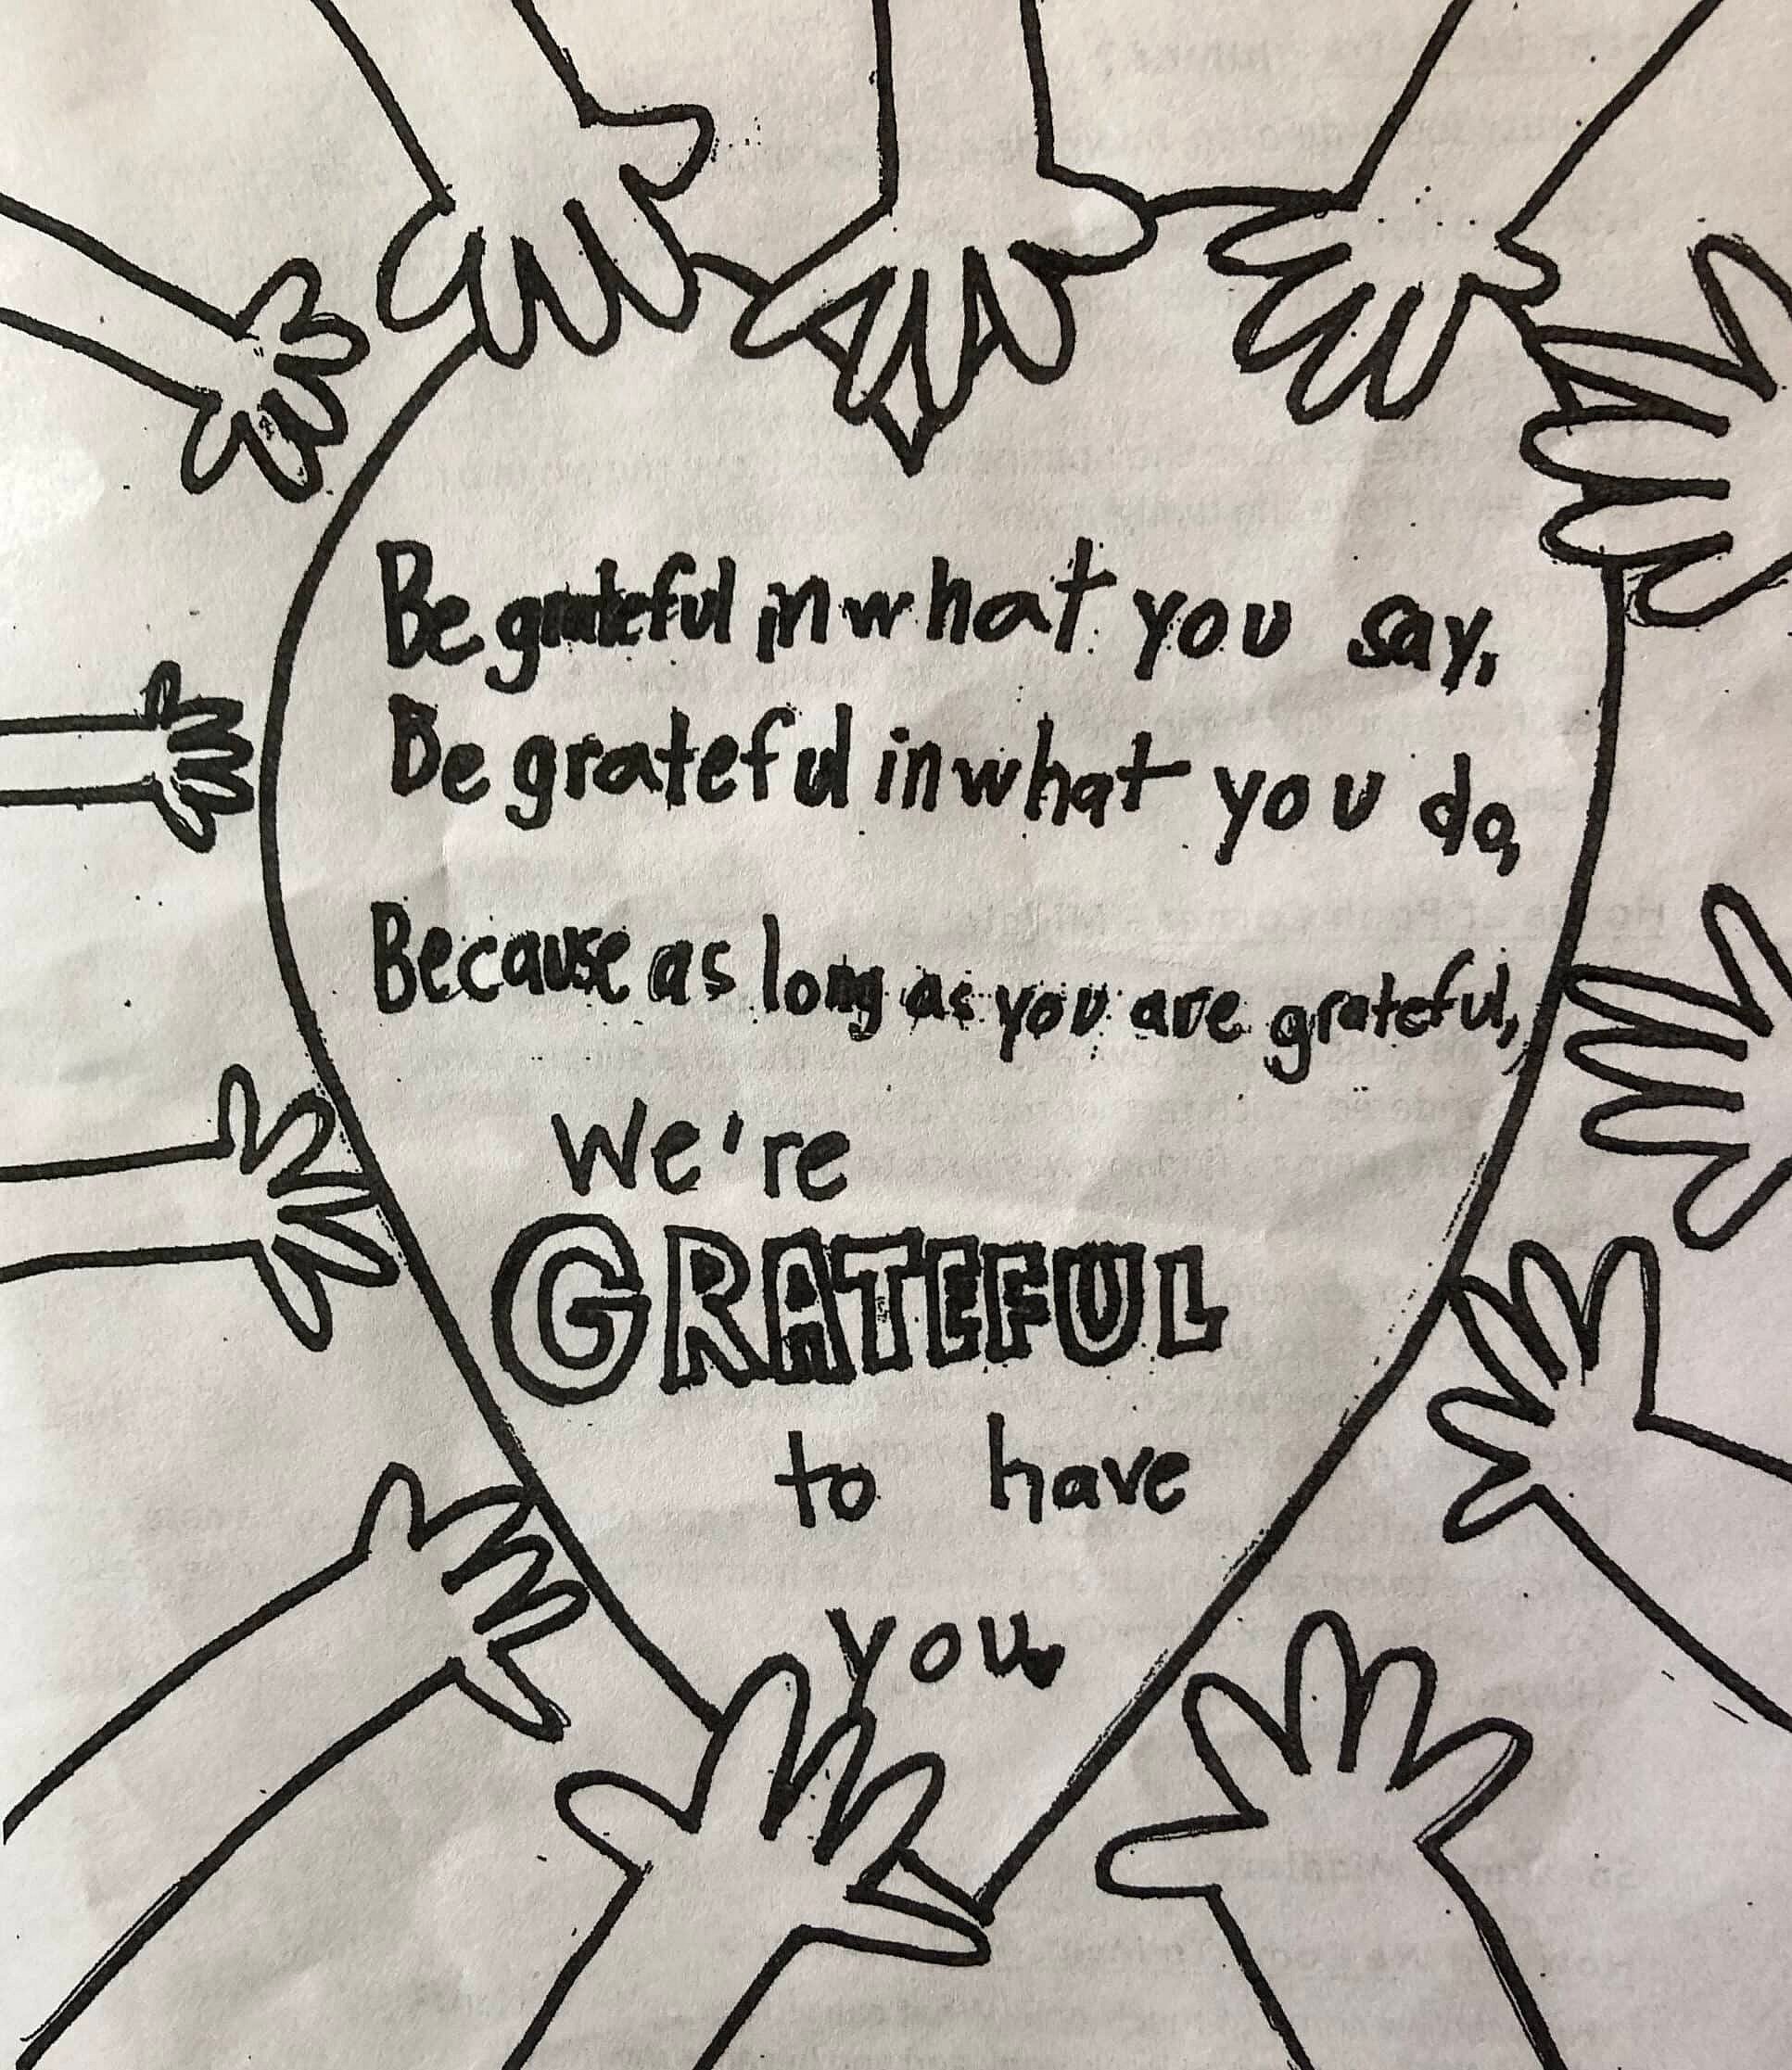 Be grateful in what you say,
Be grateful in what you do,
Because as long as you are grateful,
We're
GRATEFUL
to have
you.